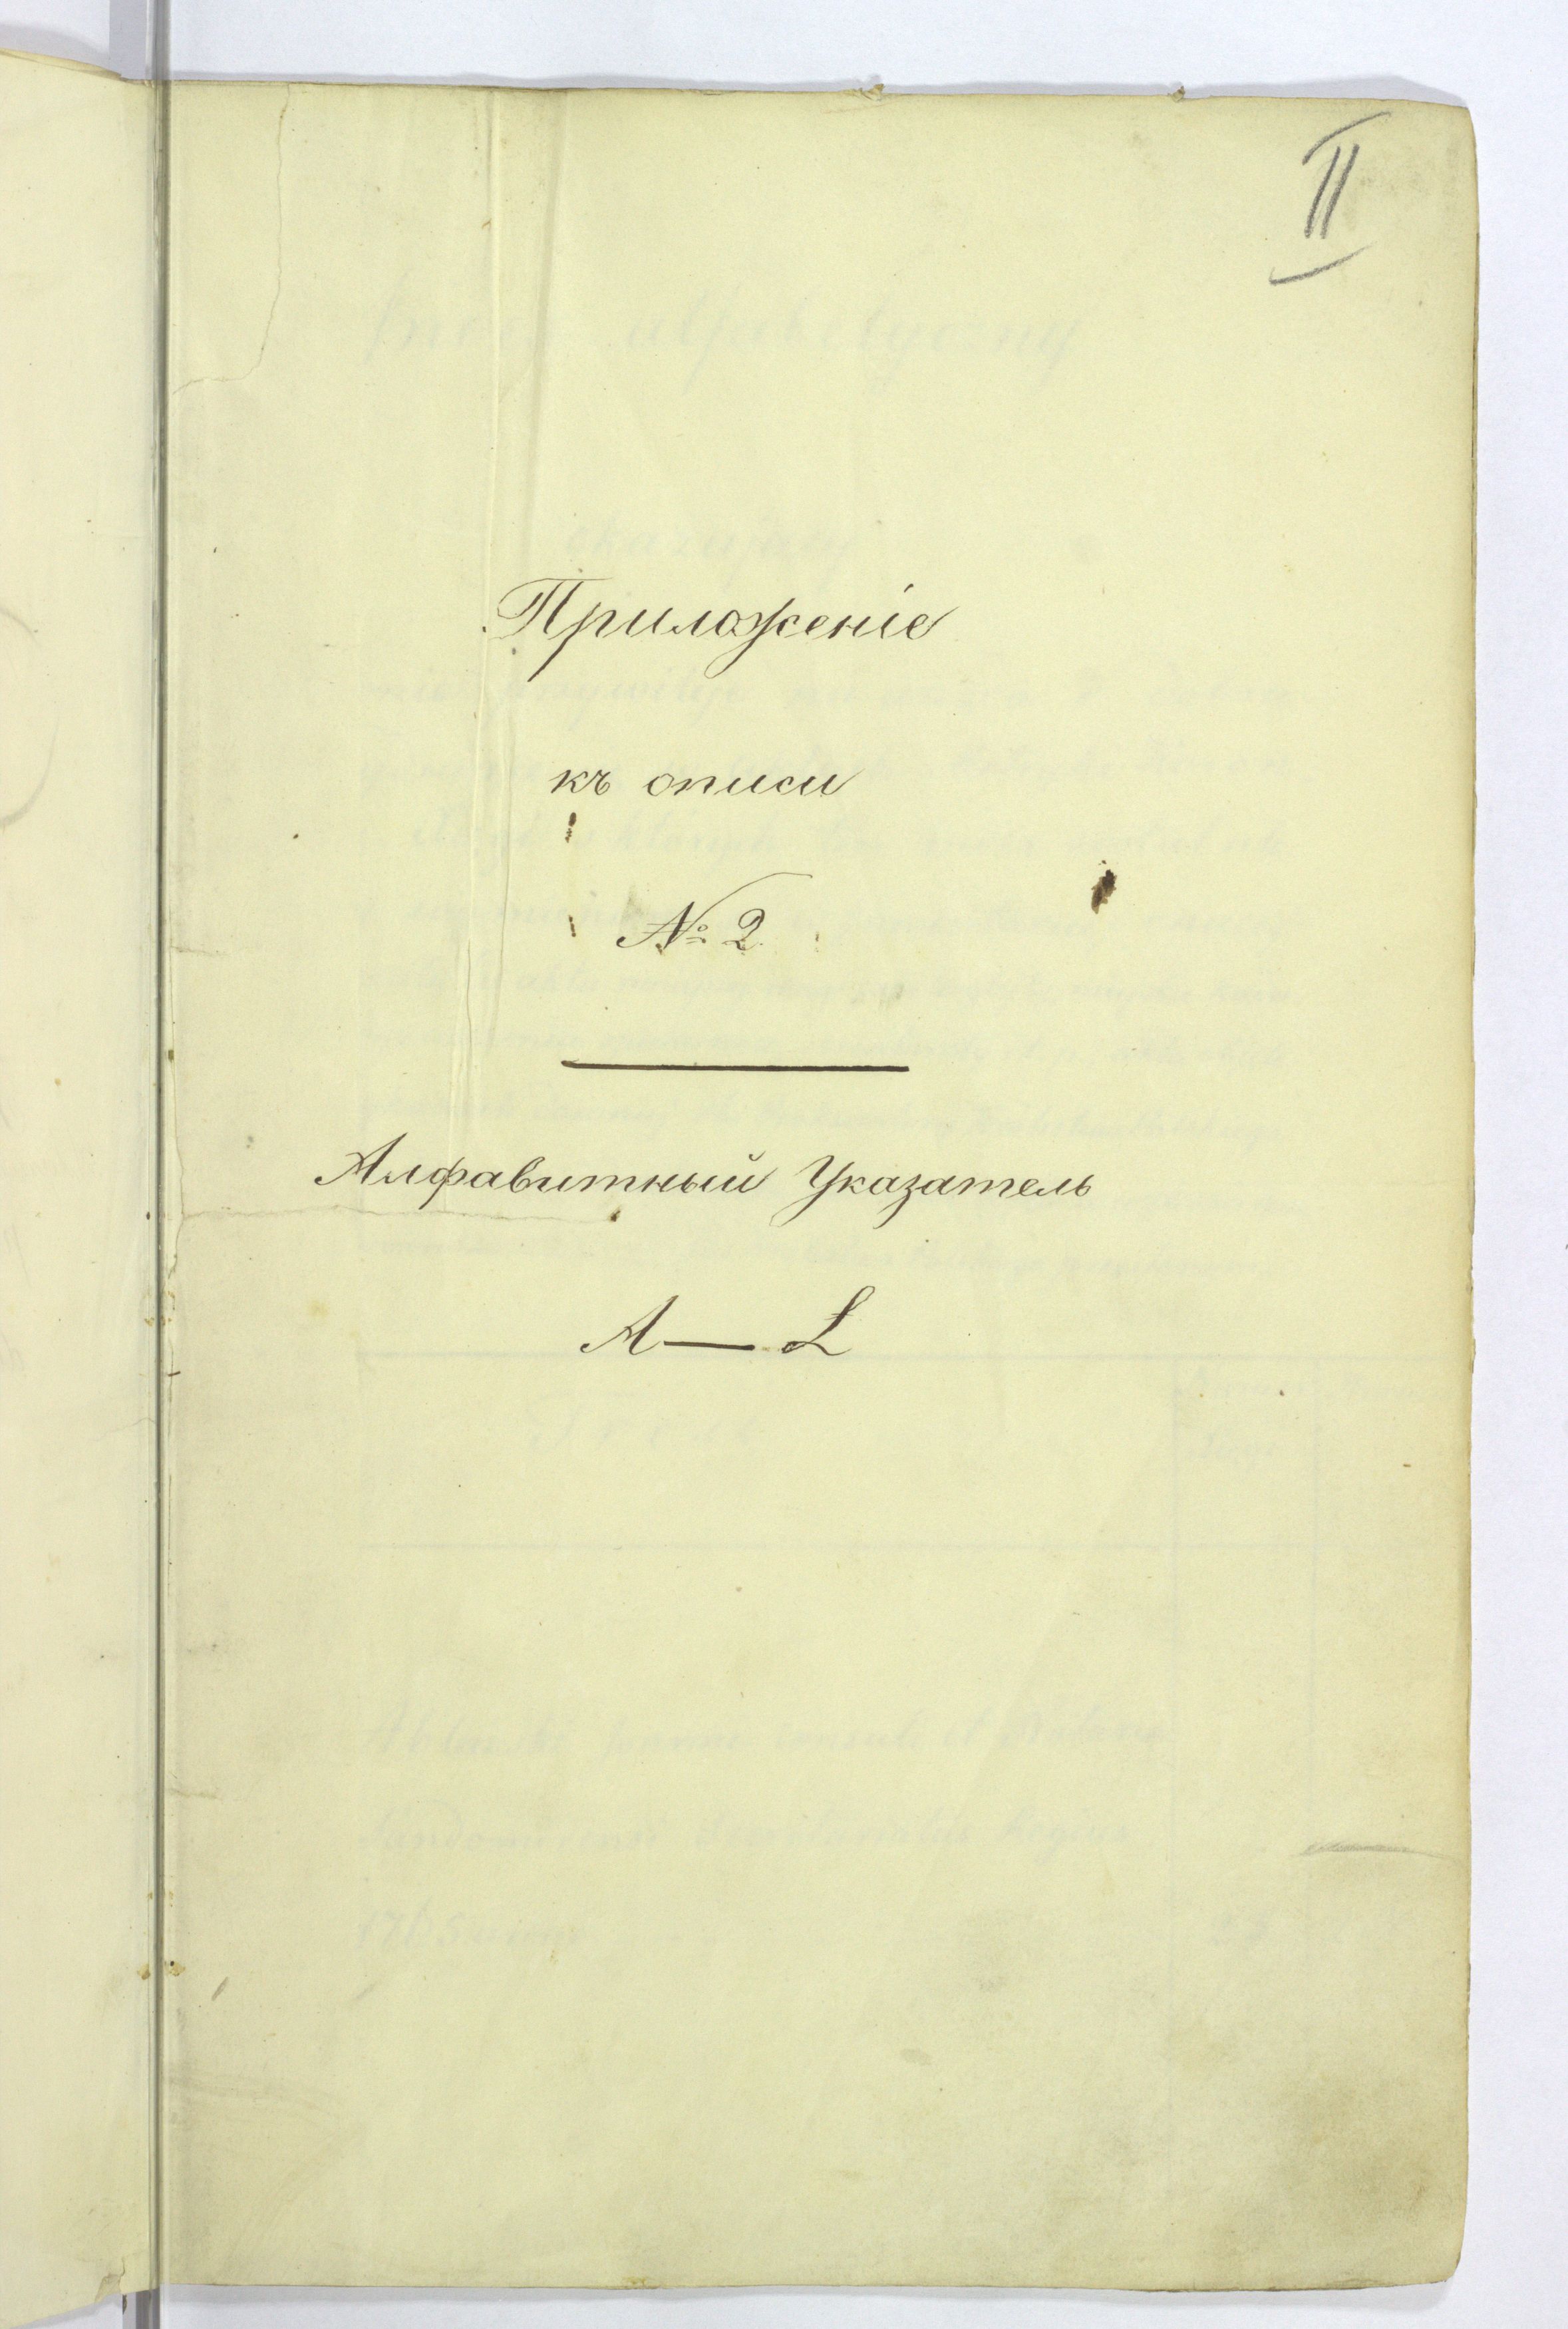 II
Приложеніе
къ описи
№ 2.
Алфавитный Указатель
A — Ł